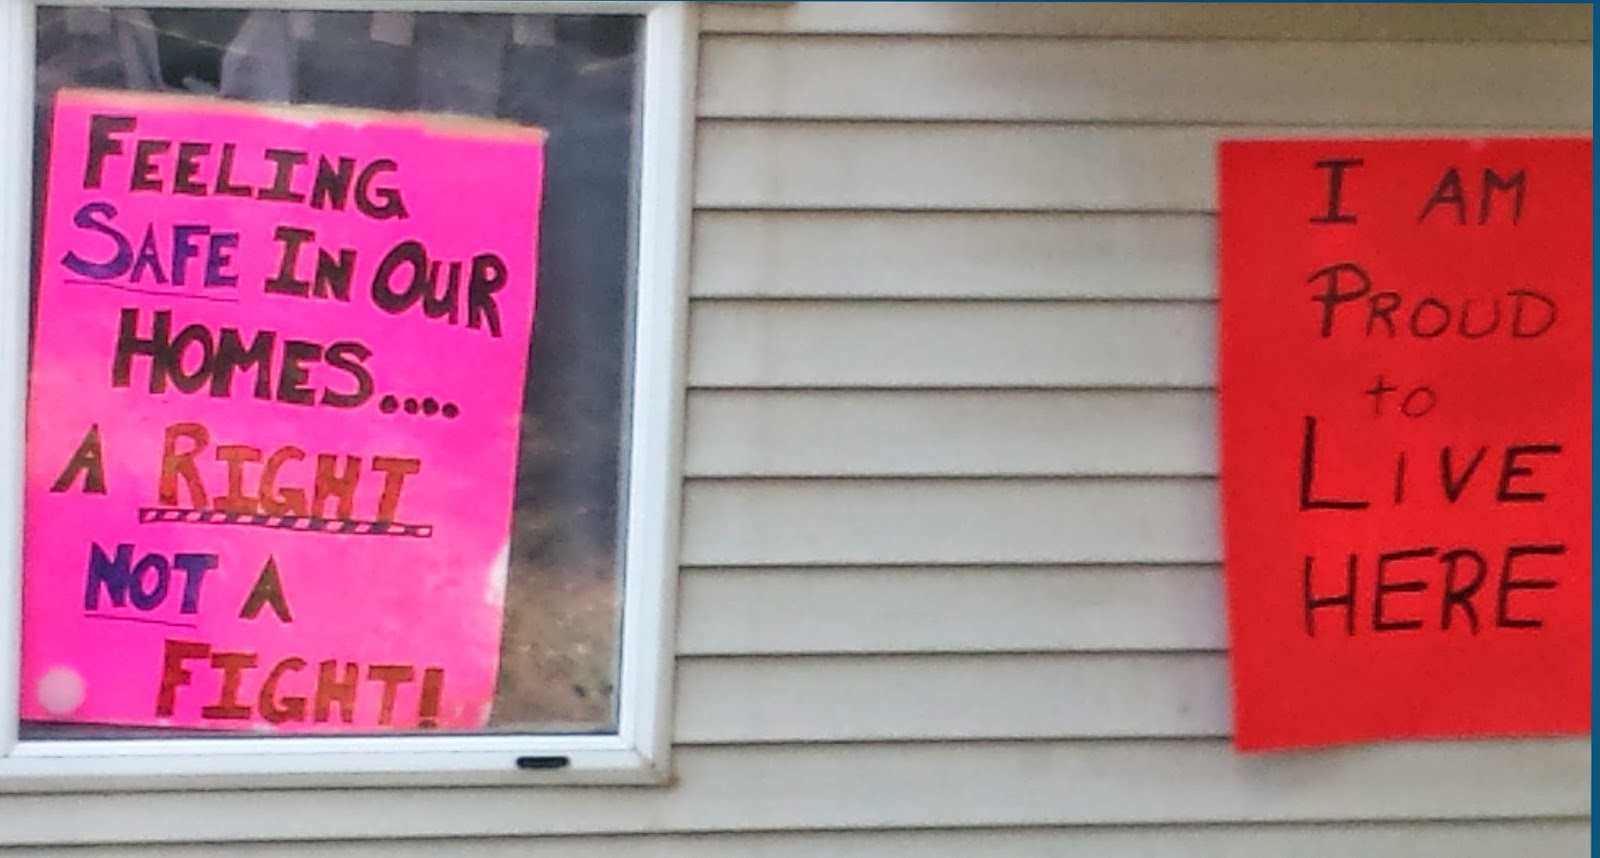 FEELING
SAFE IN OUR
HOMES....
A RIGHT
NOT A
FIGHT!
I AM
PROUD
to
LiVE
HERE